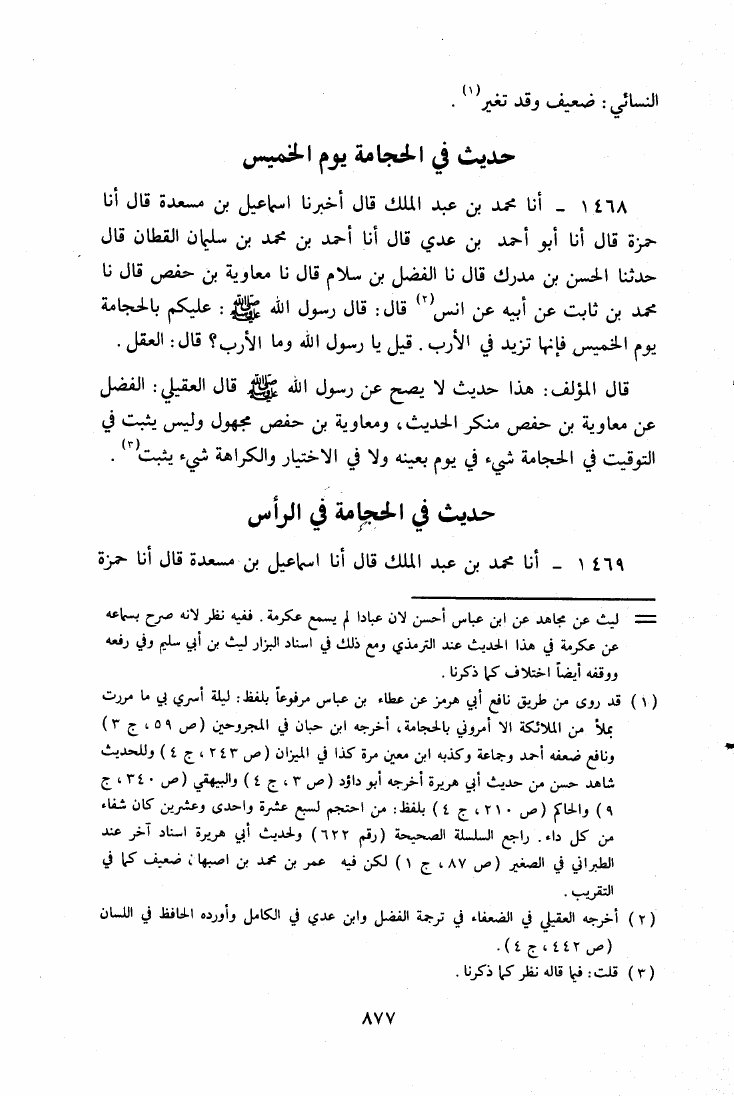 النسائي: ضعيف وقد تغير(١) .
حديث في الحجامة يوم الخميس
١٤٦٨ ـ أنا محمد بن عبد الملك قال أخبرنا اسماعيل بن مسعدة قال أنا
حمزة قال أنا أبو أحمد بن عدي قال أنا أحمد بن محمد بن سليمان القطان قال
حدثنا الحسن بن مدرك قال نا الفضل بن سلام قال نا معاوية بن حفص قال نا
محمد بن ثابت عن أبيه عن انس(٢) قال: قال رسول الله ﷺ : عليكم بالحجامة
يوم الخميس فإنها تزيد في الأرب. قيل يا رسول الله وما الأرب؟ قال: العقل.
قال المؤلف: هذا حديث لا يصح عن رسول الله ﷺ قال العقيلي: الفضل
عن معاوية بن حفص منكر الحديث، ومعاوية بن حفص مجهول وليس يثبت في
التوقيت في الحجامة شيء في يوم بعينه ولا في الاختيار والكراهة شيء يثبت(٣) .
حديث في الحجامة في الرأس
١٤٦٩ ـ أنا محمد بن عبد الملك قال أنا اسماعيل بن مسعدة قال أنا حمزة
= ليث عن مجاهد عن ابن عباس أحسن لان عبادا لم يسمع عكرمة. ففيه نظر لانه صرح بسماعه
عن عكرمة في هذا الحديث عند الترمذي ومع ذلك في اسناد البزار ليث بن أبي سليم وفي رفعه
ووقفه أيضاً اختلاف كما ذكرنا.
(١) قد روى من طريق نافع أبي هرمز عن عطاء بن عباس مرفوعاً بلفظ: ليلة أسري بي ما مررت
بملأ من الملائكة الا أمروني بالحجامة، أخرجه ابن حبان في المجروحين (ص ٥٩، ج ٣)
ونافع ضعفه أحمد وجماعة وكذبه ابن معين مرة كذا في الميزان (ص ٢٤٣، ج ٤) وللحديث
شاهد حسن من حديث أبي هريرة أخرجه أبو داؤد (ص ٣، ج ٤) والبيهقي (ص ٣٤٠، ج
٩) والحاكم (ص ٢١٠، ج ٤) بلفظ: من احتجم لسبع عشرة واحدى وعشرين كان شفاء
من كل داء. راجع السلسلة الصحيحة (رقم ٦٢٢) ولحديث أبي هريرة اسناد آخر عند
الطبراني في الصغير (ص ٨٧، ج ١) لكن فيه عمر بن محمد بن ضعيف كما في
التقريب.
(٢) أخرجه العقيلي في الضعفاء في ترجمة الفضل وابن عدي في الكامل وأورده الحافظ في اللسان
(ص ٤٤٢، ج ٤).
(٣) قلت: فيما قاله نظر كما ذكرنا.
٨٧٧